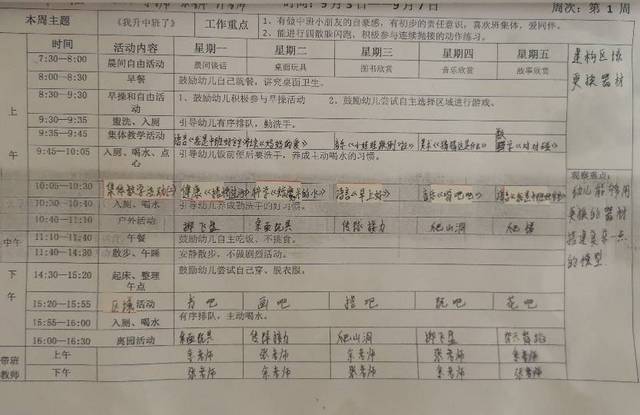 时间:9月3日——9月7日 周次:第 1 周
本周主题 《我升中班了》 工作重点 1、有做中班小朋友的自豪感,有初步的责任意识,喜欢班集体,爱同伴。
2、能进行四散躲闪跑,积极参与连续抛接的动作练习。
时间 活动内容 星期一 星期二 星期三 星期四 星期五
7:30—8:00 晨间自由活动 晨间谈话 桌面玩具 图书欣赏 音乐欣赏 故事欣赏
建构区域
更换器材
上午
8:00—8:30 早餐 鼓励幼儿自己就餐,讲究桌面卫生。
8:30—9:30 早操和自由活动 1、鼓励幼儿积极参与早操活动 2、鼓励幼儿尝试自主选择区域进行游戏。
9:30—9:35 盥洗、入厕 引导幼儿有序排队,勤洗手。
9:35—9:45 集体教学活动
9:45—10:05 入厕、喝水、点心 引导幼儿饭前便后要洗手,养成主动喝水的习惯。
10:05—10:30 集体教学活动 健康 科学 语言《早上好》 音乐
10:30—10:40 入厕、喝水 引导幼儿养成勤洗手的好习惯。
10:40—11:10 户外活动 掷飞盘 桌面玩具 传球接力 爬山洞
观察重点:
幼儿能够用
更换的器材
搭建复杂一点
的模型
中午
11:10—11:40 午餐 鼓励幼儿自主吃饭,不挑食。
11:40—14:30 散步、午睡 安静散步,不做剧烈活动。
下午
14:30—15:20 起床、整理 午点 鼓励幼儿尝试自己穿、脱衣服。
15:20—15:55 区域活动 书吧 画吧 搭吧 玩吧 花吧
15:55—16:00 入厕、喝水 有序排队,主动喝水。
16:00—16:30 离园活动 桌面玩具 传球接力 爬山洞 掷飞盘
带班教师
上午 余老师 张老师 余老师 张老师 余老师
下午 张老师 余老师 张老师 余老师 张老师